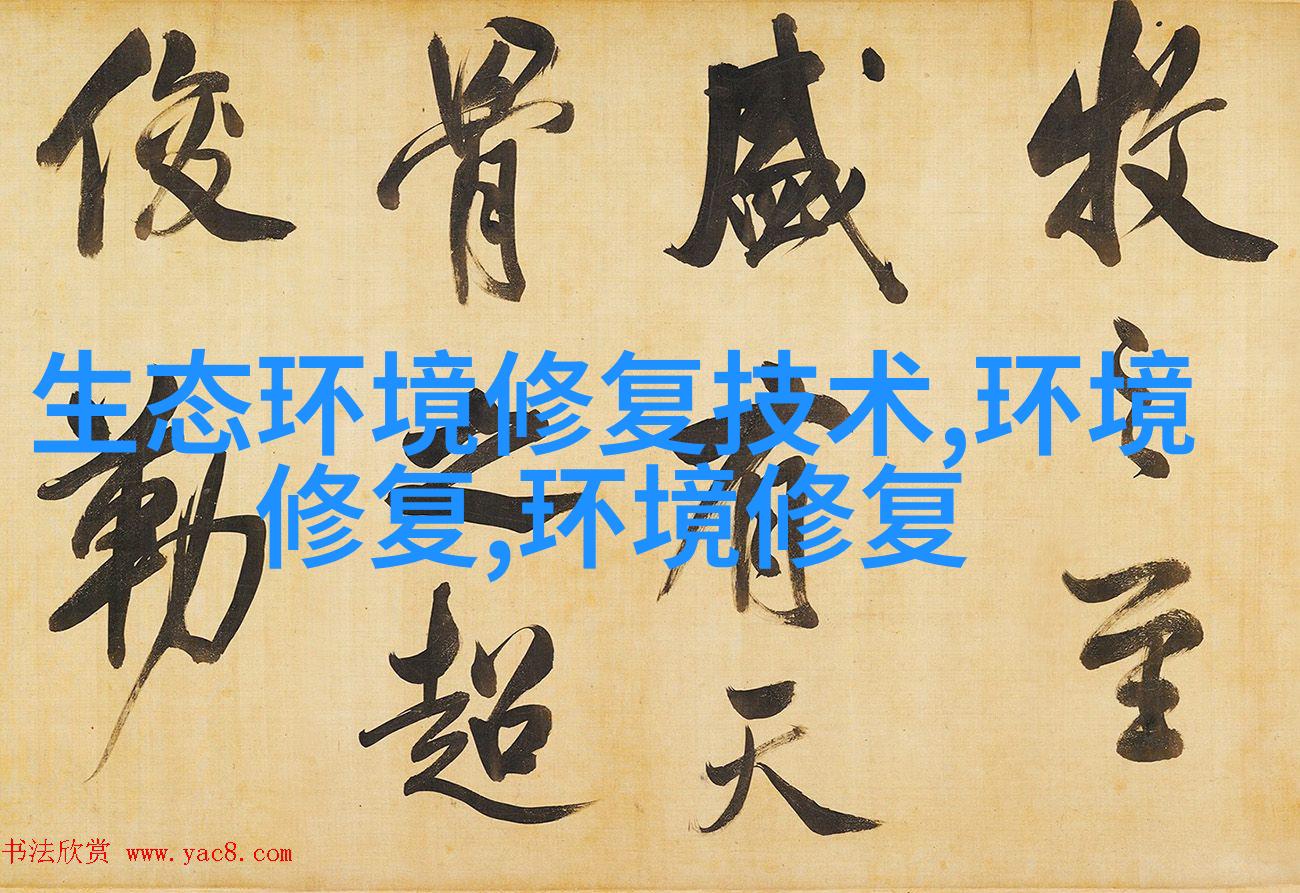 牧之至
盛有天
骨之超
俊勒
生态环境修复技术,环境
修复,环境修复
书法欣赏 www.yac8.com